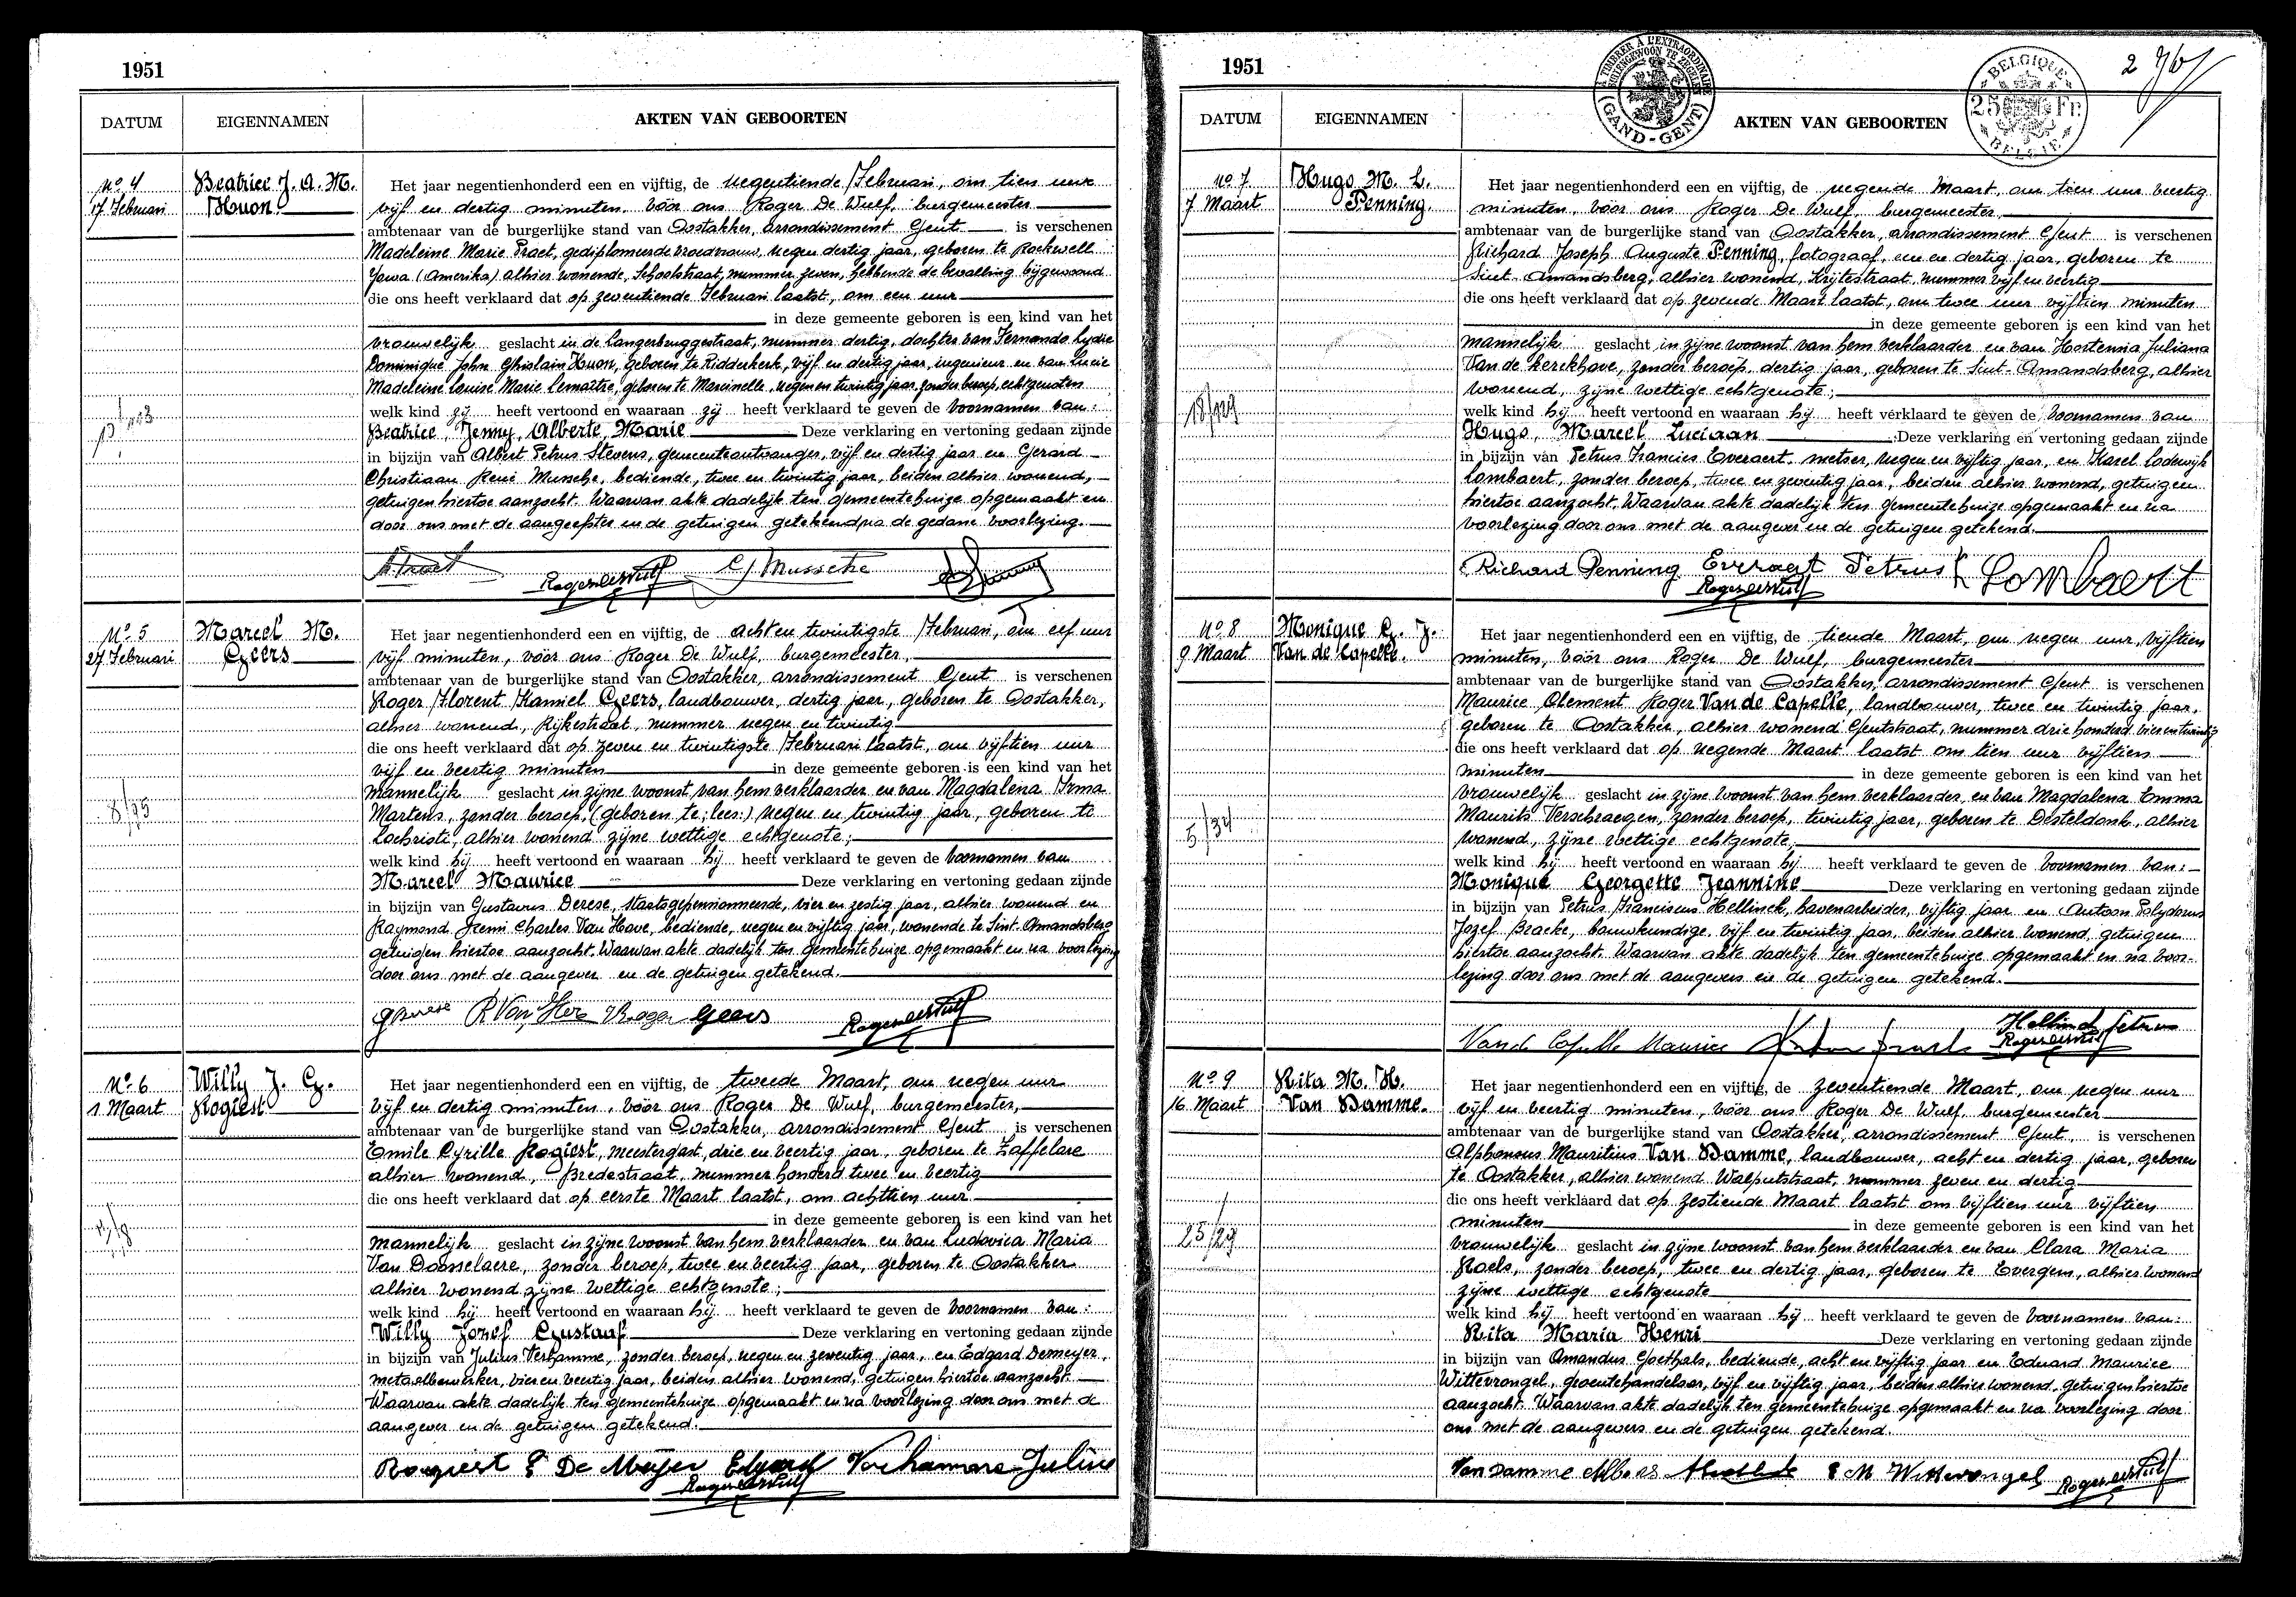 1951
DATUM
EIGENNAMEN
AKTEN VAN GEBOORTEN
No 4
17 Februari
Beatrice J. A. M.
Huon
Het jaar negentienhonderd een en vijftig, de negentiende Februari, om tien uur
vijf en dertig minuten, vóór ons Roger De Wulf, burgemeester
ambtenaar van de burgerlijke stand van Oostakker, arrondissement Gent is verschenen
Madeleine Marie Praet, gediplomeerde vroedvrouw, negen dertig jaar, geboren te Rockwell
Yowa (Amerika) alhier wonende, Schoolstraat, nummer zeven, hebbende de bevalling bijgewoond
die ons heeft verklaard dat op zeventiende Februari laatst, om een uur
in deze gemeente geboren is een kind van het
vrouwelijk geslacht in de Langerbruggestraat, nummer dertig, dochter van Fernando Lydie
Dominique John Ghislain Huon, geboren te Ridderkerk, vijf en dertig jaar, ingenieur en van Lucie
Madeleine Louise Marie Lemaître, geboren te Marcinelle, negen en twintig jaar, zonder beroep, echtgenoten
welk kind zij heeft vertoond en waaraan zij heeft verklaard te geven de voornamen van:
Beatrice, Jenny, Alberte, Marie Deze verklaring en vertoning gedaan zijnde
in bijzijn van Albert Petrus Stevens, gemeenteontvanger, vijf en dertig jaar en Gerard
Christiaan René Mussche, bediende, twee en twintig jaar, beiden alhier wonend,
getuigen hiertoe aanzocht. Waarvan akte dadelijk ten gemeentehuize opgemaakt en
door ons met de aangeefster en de getuigen getekend na de gedane voorlezing.
Roger De Wulf G Mussche
No 5
27 Februari
Marcel M.
Geers
Het jaar negentienhonderd een en vijftig, de acht en twintigste Februari, om elf uur
vijf minuten, vóór ons Roger De Wulf, burgemeester,
ambtenaar van de burgerlijke stand van Oostakker, arrondissement Gent is verschenen
Roger Florent Kamiel Geers, landbouwer, dertig jaar, geboren te Oostakker,
alhier wonend, Rijkestraat, nummer negen en twintig
die ons heeft verklaard dat op zeven en twintigste Februari laatst, om vijftien uur
vijf en veertig minuten in deze gemeente geboren is een kind van het
mannelijk geslacht in zijne woonst van hem verklaarder en van Magdalena Irma
Martens, zonder beroep, (geboren te; lees:) negen en twintig jaar, geboren te
Lochristi, alhier wonend zijne wettige echtgenote;
welk kind hij heeft vertoond en waaraan hij heeft verklaard te geven de voornamen van
Marcel Maurice Deze verklaring en vertoning gedaan zijnde
in bijzijn van Gustavus Derese, staatsgepensionneerde, vier en zestig jaar, alhier wonend en
Raymond Remi Charles Van Hove, bediende, negen en vijftig jaar, wonende te Sint-Amandsberg
getuigen hiertoe aanzocht. Waarvan akte dadelijk ten gemeentehuize opgemaakt en na voorlezing
door ons met de aangever en de getuigen getekend.
R Van Hove Roger Geers Roger De Wulf
No 6
1 Maart
Willy J. G.
Rogiest
Het jaar negentienhonderd een en vijftig, de tweede Maart, om negen uur
vijf en dertig minuten, vóór ons Roger De Wulf, burgemeester,
ambtenaar van de burgerlijke stand van Oostakker, arrondissement Gent is verschenen
Emile Cyrille Rogiest, meestergast, drie en veertig jaar, geboren te Zaffelare
alhier wonend, Bredestraat, nummer honderd twee en veertig
die ons heeft verklaard dat op eerste Maart laatst, om achttien uur
in deze gemeente geboren is een kind van het
mannelijk geslacht in zijne woonst van hem verklaarder en van Ludovica Maria
Van Dosselaere, zonder beroep, twee en veertig jaar, geboren te Oostakker
alhier wonend zijne wettige echtgenote;
welk kind hij heeft vertoond en waaraan hij heeft verklaard te geven de voornamen van:
Willy Jozef Gustaaf Deze verklaring en vertoning gedaan zijnde
in bijzijn van Julius Verhamme, zonder beroep, negen en zeventig jaar, en Edgard Demeyer,
metaalbewerker, vier en veertig jaar, beiden alhier wonend, getuigen hiertoe aanzocht
Waarvan akte dadelijk ten gemeentehuize opgemaakt en na voorlezing door ons met de
aangever en de getuigen getekend.
Rogiest E De Meyer Edgard Verhamme Julius
Roger De Wulf
1951
A TIMBRER À L'EXTRAORDINAIRE
BUITENGEWOON TE ZEGELEN
(GAND-GENT)
BELGIQUE
25 Fr.
BELGIE
DATUM
EIGENNAMEN
AKTEN VAN GEBOORTEN
No 7
7 Maart
Hugo M. L.
Penning.
18/129
Het jaar negentienhonderd een en vijftig, de negende Maart, om tien uur veertig
minuten, vóór ons Roger De Wulf, burgemeester,
ambtenaar van de burgerlijke stand van Oostakker, arrondissement Gent is verschenen
Richard Joseph Auguste Penning, fotograaf, een en dertig jaar, geboren te
Sint-Amandsberg, alhier wonend, Krijtestraat, nummer vijf en veertig
die ons heeft verklaard dat op zevende Maart laatst, om twee uur vijftien minuten
in deze gemeente geboren is een kind van het
mannelijk geslacht in zijne woonst van hem verklaarder en van Hortensia Juliana
Van de Kerckhove, zonder beroep, dertig jaar, geboren te Sint-Amandsberg, alhier
wonend, zijne wettige echtgenote;
welk kind hij heeft vertoond en waaraan hij heeft verklaard te geven de voornamen van
Hugo, Marcel Luciaan Deze verklaring en vertoning gedaan zijnde
in bijzijn van Petrus Francies Everaert, metser, negen en vijftig jaar, en Karel Lodewijk
Lombaert, zonder beroep, twee en zeventig jaar, beiden alhier wonend, getuigen
hiertoe aanzocht. Waarvan akte dadelijk ten gemeentehuize opgemaakt en na
voorlezing door ons met de aangever en de getuigen getekend.
Richard Penning Everaert Petrus K Lombaert
Roger De Wulf
No 8
9 Maart
Monique G. J.
Van de Capelle.
5/34
Het jaar negentienhonderd een en vijftig, de tiende Maart, om negen uur, vijftien
minuten, vóór ons Roger De Wulf, burgemeester
ambtenaar van de burgerlijke stand van Oostakker, arrondissement Gent is verschenen
Maurice Clement Roger Van de Capelle, landbouwer, twee en twintig jaar,
geboren te Oostakker, alhier wonend Gentstraat, nummer drie honderd vier en twintig
die ons heeft verklaard dat op negende Maart laatst om tien uur vijftien
minuten in deze gemeente geboren is een kind van het
vrouwelijk geslacht in zijne woonst van hem verklaarder, en van Magdalena Emma
Maurits Verschraegen, zonder beroep, twintig jaar, geboren te Desteldonk, alhier
wonend, zijne wettige echtgenote;
welk kind hij heeft vertoond en waaraan hij heeft verklaard te geven de voornamen van:
Monique Georgette Jeannine Deze verklaring en vertoning gedaan zijnde
in bijzijn van Petrus Franciscus Hellinck, havenarbeider, vijftig jaar en Antoon Polydorus
Jozef Bracke, bouwkundige, vijf en twintig jaar, beiden alhier wonend, getuigen
hiertoe aanzocht. Waarvan akte dadelijk ten gemeentehuize opgemaakt en na voor-
lezing door ons met de aangevers en de getuigen getekend.
Van de Capelle Maurice Hellinck Petrus
Roger De Wulf
No 9
16 Maart
Rita M. H.
Van Damme.
25/29
Het jaar negentienhonderd een en vijftig, de zeventiende Maart, om negen uur
vijf en veertig minuten, vóór ons Roger De Wulf, burgemeester
ambtenaar van de burgerlijke stand van Oostakker, arrondissement Gent, is verschenen
Alphonsus Mauritius Van Damme, landbouwer, acht en dertig jaar, geboren
te Oostakker, alhier wonend Walputstraat, nummer zeven en dertig
die ons heeft verklaard dat op zestiende Maart laatst om vijftien uur vijftien
minuten in deze gemeente geboren is een kind van het
vrouwelijk geslacht in zijne woonst van hem verklaarder en van Clara Maria
Roels, zonder beroep, twee en dertig jaar, geboren te Evergem, alhier wonend
zijne wettige echtgenote
welk kind hij heeft vertoond en waaraan hij heeft verklaard te geven de voornamen van:
Rita Maria Henri Deze verklaring en vertoning gedaan zijnde
in bijzijn van Amandus Goethals, bediende, acht en vijftig jaar en Eduard Maurice
Wittevrongel, groentehandelaar, vijf en vijftig jaar, beiden alhier wonend, getuigen hiertoe
aanzocht. Waarvan akte dadelijk ten gemeentehuize opgemaakt en na voorlezing door
ons met de aangevers en de getuigen getekend.
Van Damme E M Wittevrongel Roger De Wulf